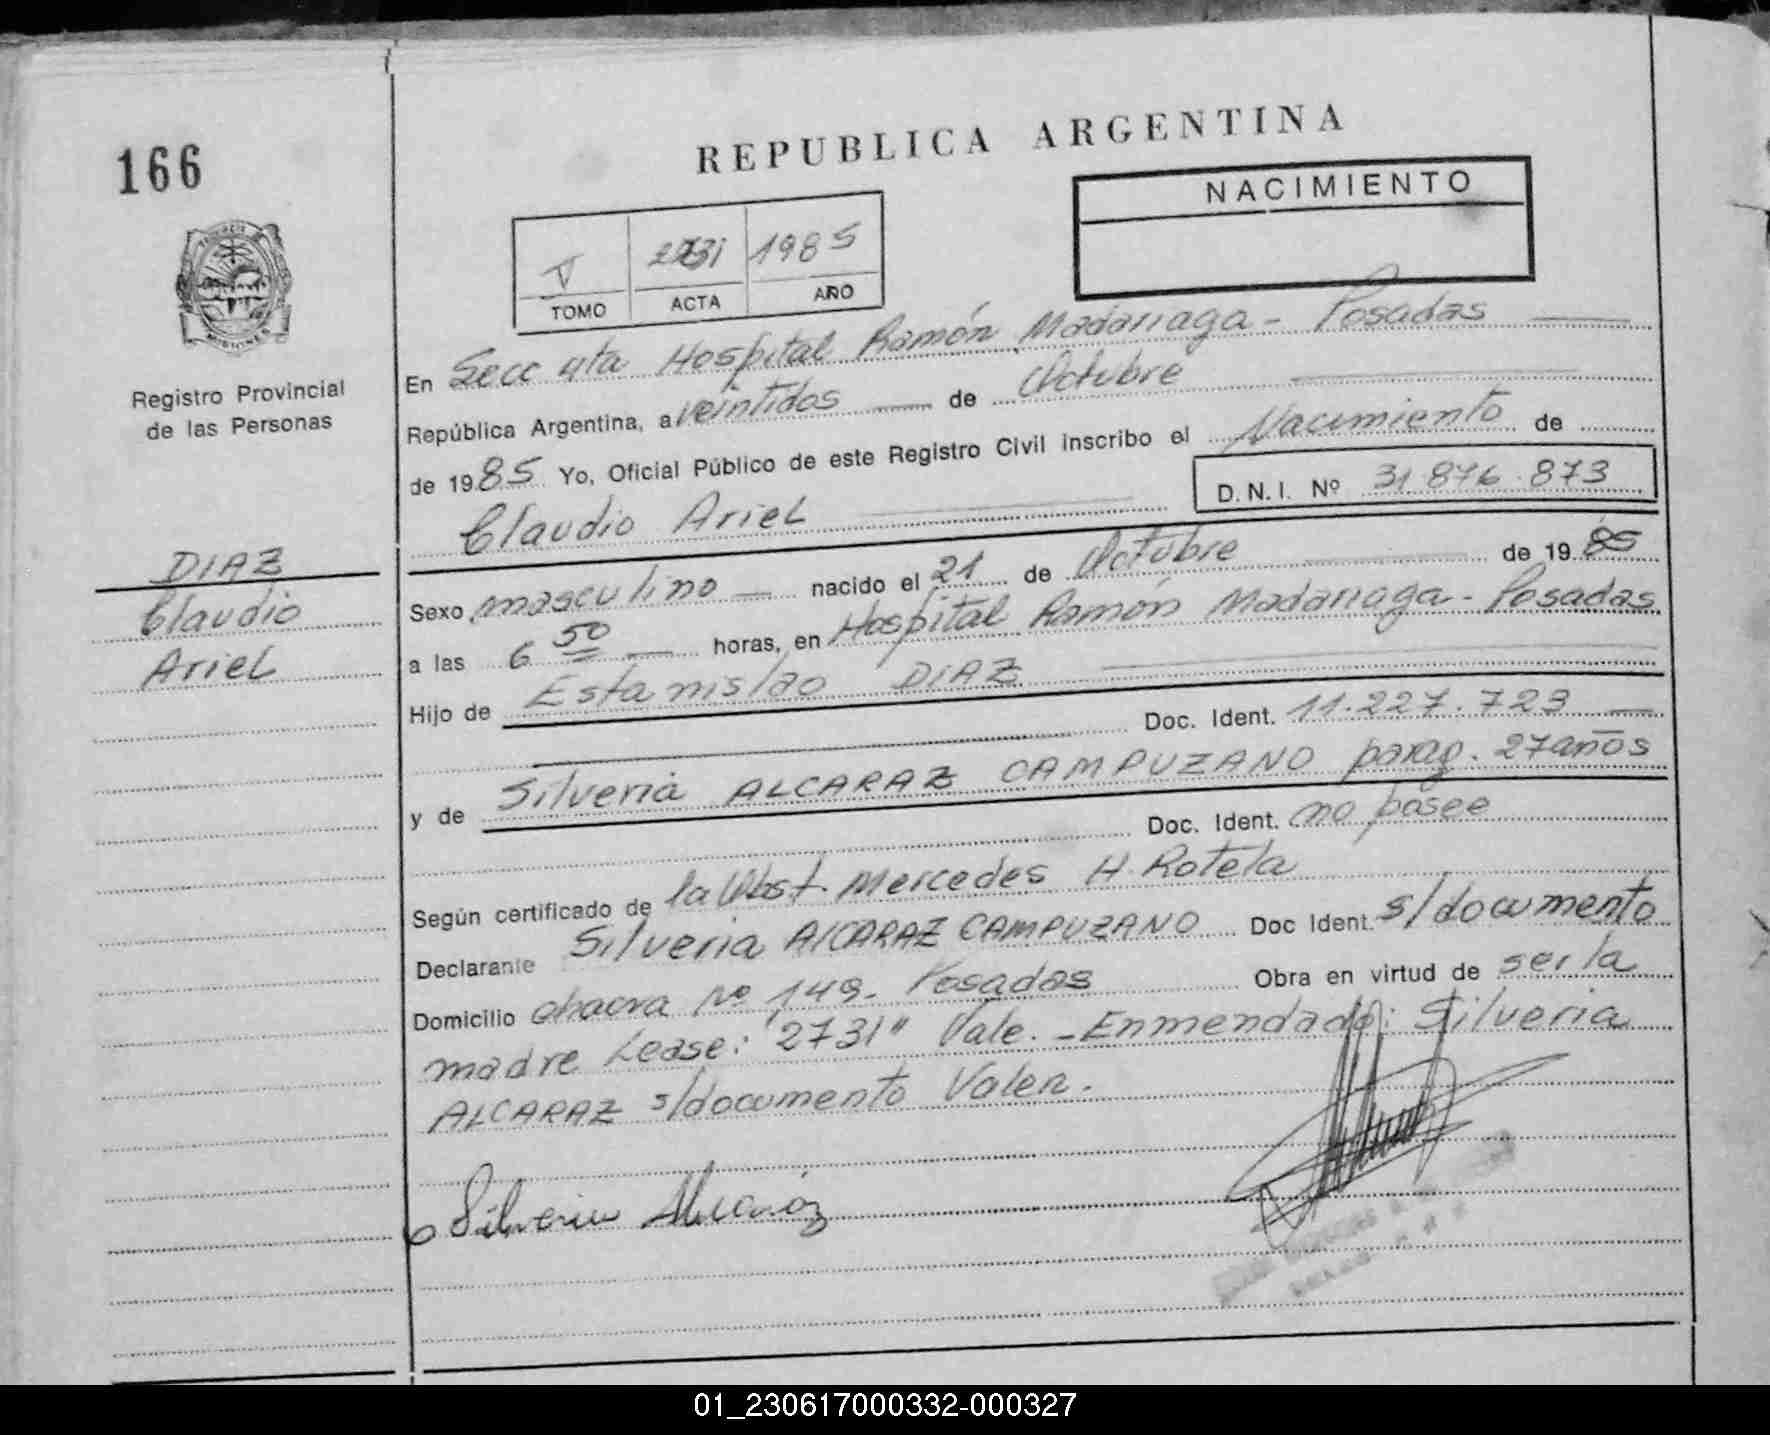 166
REPUBLICA ARGENTINA
NACIMIENTO
V 2731 1985
TOMO ACTA AÑO
MISIONES
Registro Provincial
de las Personas
En Secc 4ta Hospital Ramón Madariaga - Posadas
República Argentina, a veintidos de Octubre
de 1985 Yo, Oficial Público de este Registro Civil inscribo el Nacimiento de
D.N.I. Nº 31.876.873
Claudio Ariel
DIAZ
Claudio
Ariel
Sexo masculino nacido el 21 de Octubre de 1985
a las 6 50 horas, en Hospital Ramón Madariaga - Posadas
Hijo de Estanislao DIAZ
Doc. Ident. 11.227.723
y de Silveria ALCARAZ CAMPUZANO parag. 27 años
Doc. Ident. no posee
Según certificado de la Obst. Mercedes H. Rotela
Declarante Silveria ALCARAZ CAMPUZANO Doc Ident. s/documento
Domicilio chacra Nº 149- Posadas Obra en virtud de ser la
madre Lease: "2731" Vale. - Enmendado: Silveria
ALCARAZ s/documento Valen.
Silveria Alcaráz
01_230617000332-000327